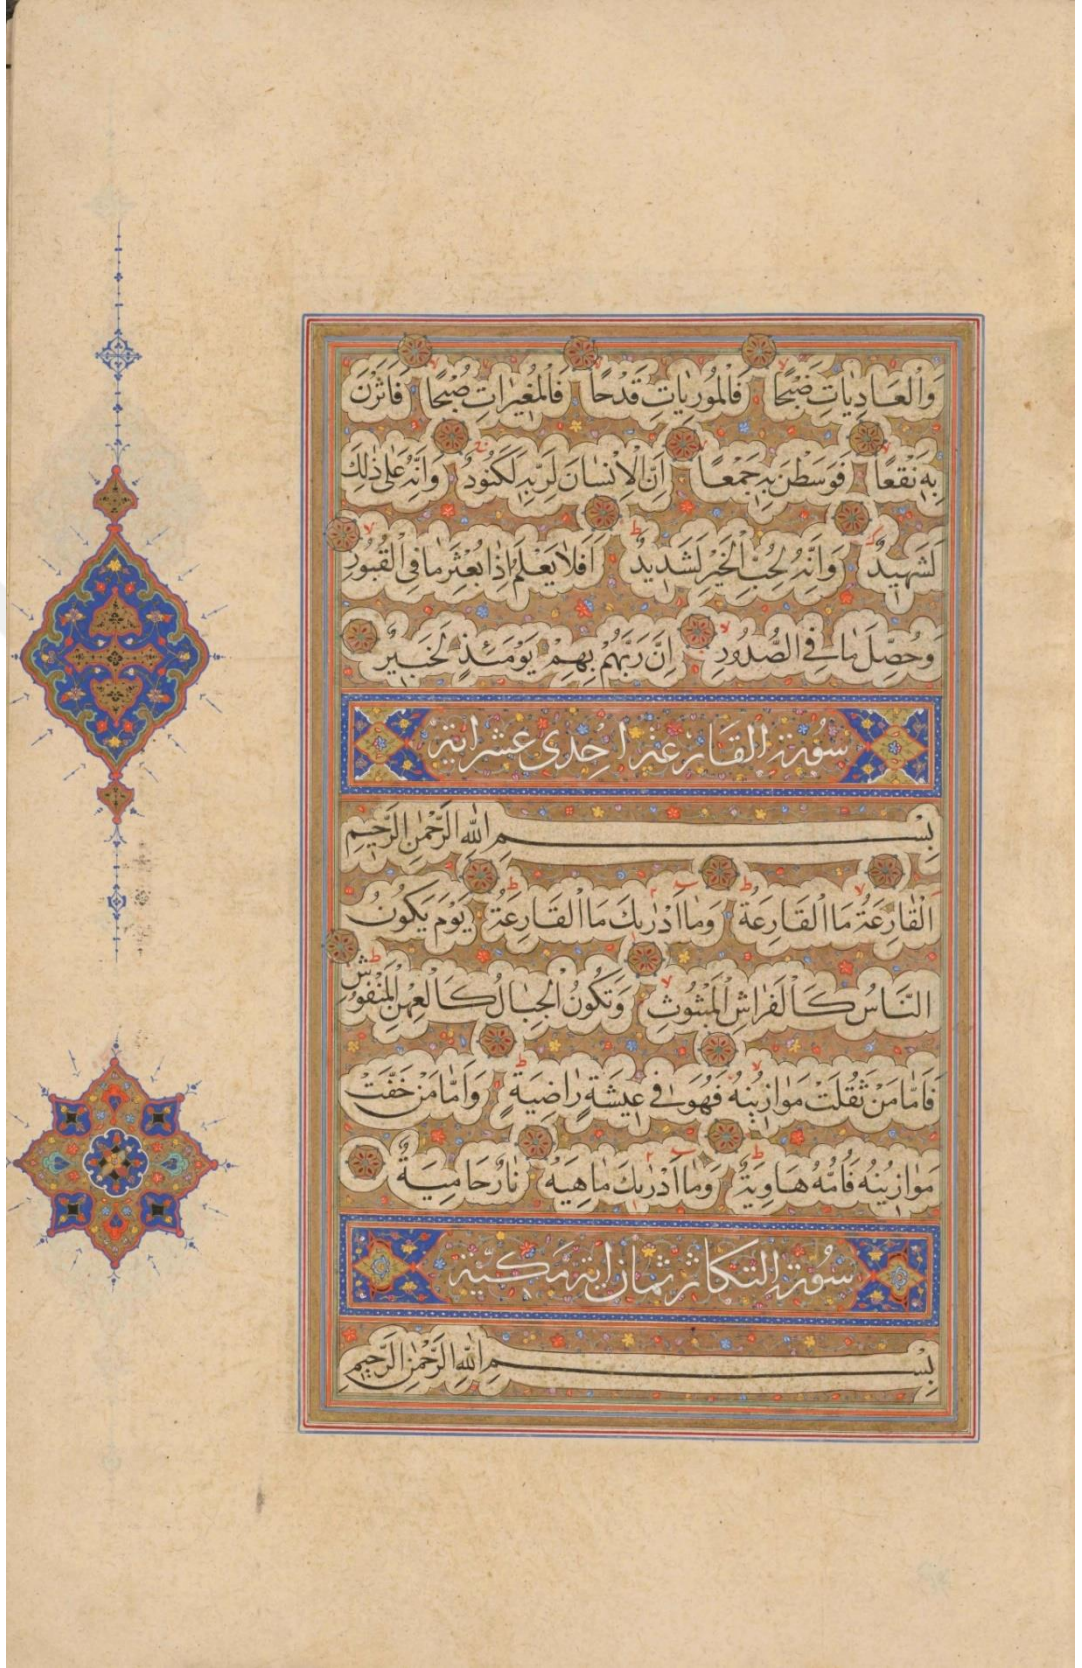 وَالْعَادِيَاتِ ضَبْحًا فَالْمُورِيَاتِ قَدْحًا فَالْمُغِيرَاتِ صُبْحًا فَاَثَرْنَ
بِهِ نَقْعًا فَوَسَطْنَ بِهِ جَمْعًا اِنَّ الْاِنْسَانَ لِرَبِّهِ لَكَنُودٌ وَاِنَّهُ عَلٰى ذٰلِكَ
لَشَهِيدٌ وَاِنَّهُ لِحُبِّ الْخَيْرِ لَشَدِيدٌ اَفَلَا يَعْلَمُ اِذَا بُعْثِرَ مَا فِى الْقُبُورِ
وَحُصِّلَ مَا فِى الصُّدُورِ اِنَّ رَبَّهُمْ بِهِمْ يَوْمَئِذٍ لَخَبِيرٌ
سورة القارعة احدى عشر اية
بِسْمِ اللّٰهِ الرَّحْمٰنِ الرَّحِيمِ
اَلْقَارِعَةُ مَا الْقَارِعَةُ وَمَا اَدْرٰيكَ مَا الْقَارِعَةُ يَوْمَ يَكُونُ
النَّاسُ كَالْفَرَاشِ الْمَبْثُوثِ وَتَكُونُ الْجِبَالُ كَالْعِهْنِ الْمَنْفُوشِ
فَاَمَّا مَنْ ثَقُلَتْ مَوَازِينُهُ فَهُوَ فِى عِيشَةٍ رَاضِيَةٍ وَاَمَّا مَنْ خَفَّتْ
مَوَازِينُهُ فَاُمُّهُ هَاوِيَةٌ وَمَا اَدْرٰيكَ مَا هِيَهْ نَارٌ حَامِيَةٌ
سورة التكاثر ثمان اية مكية
بِسْمِ اللّٰهِ الرَّحْمٰنِ الرَّحِيمِ